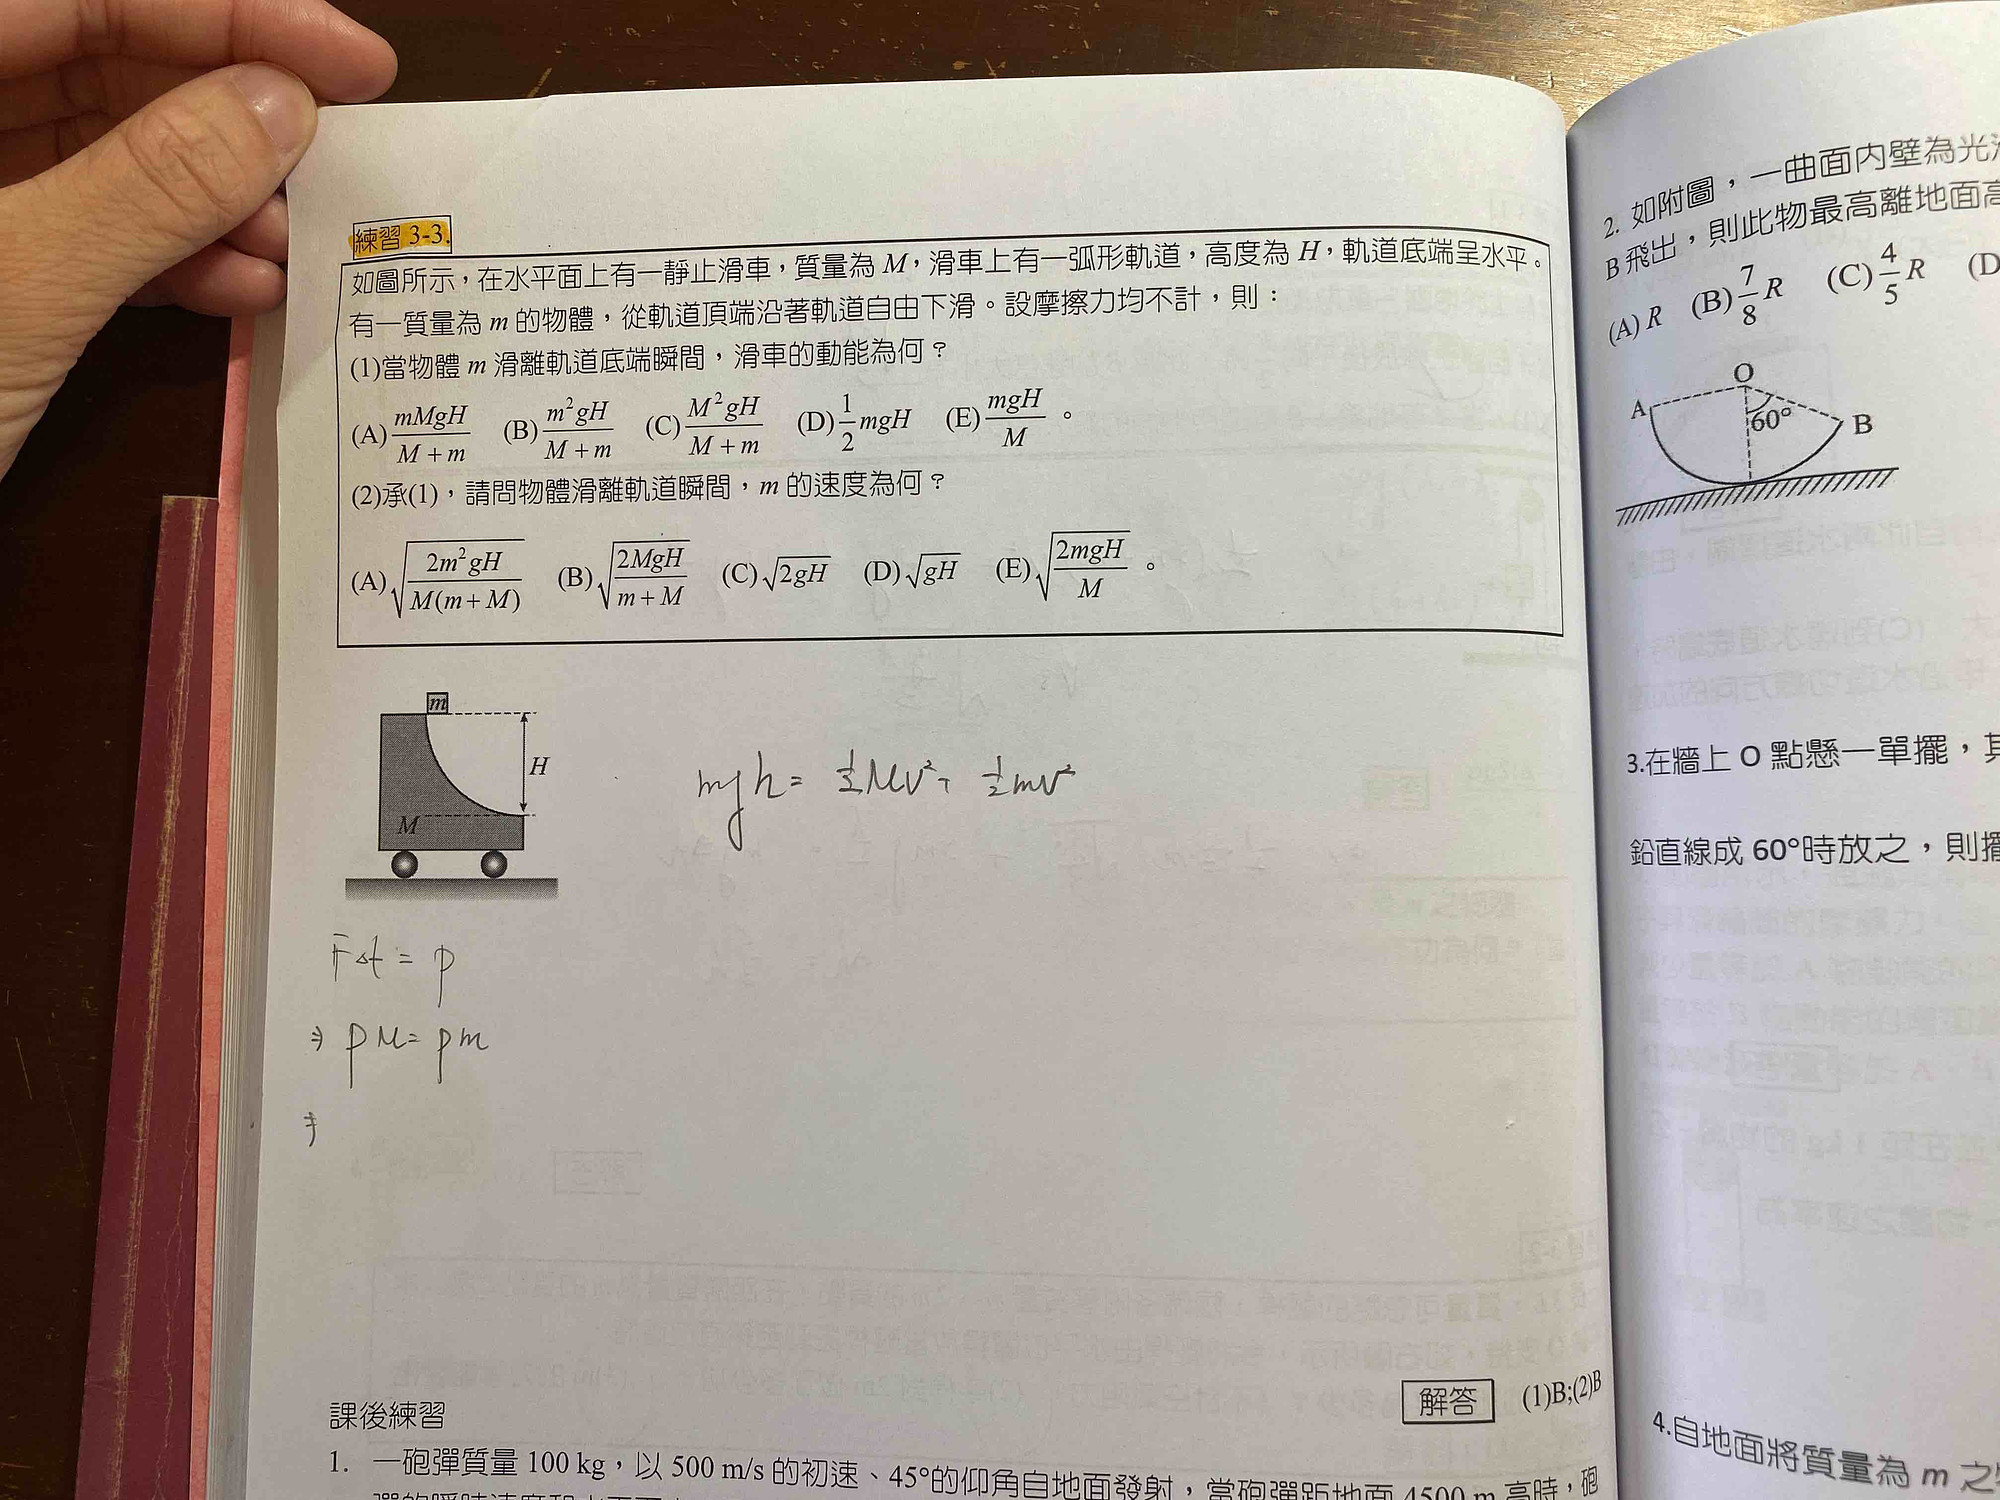 練習 3-3.
如圖所示，在水平面上有一靜止滑車，質量為 M，滑車上有一弧形軌道，高度為 H，軌道底端呈水平。
有一質量為 m 的物體，從軌道頂端沿著軌道自由下滑。設摩擦力均不計，則：
(1)當物體 m 滑離軌道底端瞬間，滑車的動能為何？
(A) mMgH/(M+m) (B) m²gH/(M+m) (C) M²gH/(M+m) (D) 1/2 mgH (E) mgH/M 。
(2)承(1)，請問物體滑離軌道瞬間，m 的速度為何？
(A) √(2m²gH/(M(m+M))) (B) √(2MgH/(m+M)) (C) √(2gH) (D) √(gH) (E) √(2mgH/M) 。
m
H
M
mgh = ½MV² + ½mv²
F△t = p
⇒ pM = pm
⇒
解答 (1)B;(2)B
課後練習
1. 一砲彈質量 100 kg，以 500 m/s 的初速、45°的仰角自地面發射，當砲彈距地面 4500 m 高時，砲
2. 如附圖，一曲面內壁為光
B 飛出，則此物最高離地面高
(A) R (B) 7/8 R (C) 4/5 R (D
O
A
60°
B
3.在牆上 O 點懸一單擺，其
鉛直線成 60°時放之，則擺
4.自地面將質量為 m 之